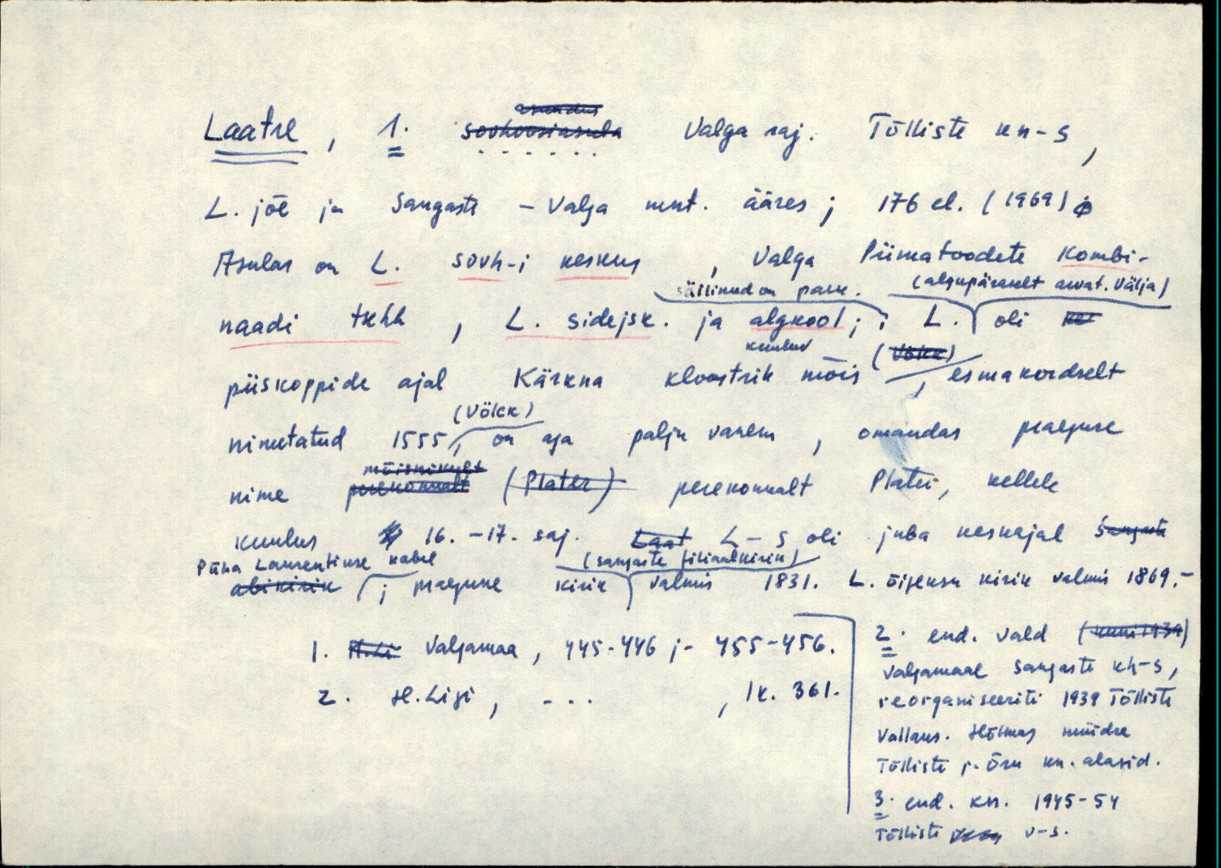 Laatre, 1. asundus sovhoosiasula Valga raj. Tõlliste kn-s,
L. jõe ja Sangaste - Valga mnt. ääres; 176 el. (1969)
Asulas on L. sovh-i keskus, Valga Piimatoodete Kombi-
säilinud on park. (algupäraselt arvat. Välja)
naadi tsehh, L. sidejsk. ja algkool; L. oli
piiskoppide ajal Kärkna kloostrile kuuluv mõis (Võlck), esmakordselt
(Völck)
nimetatud 1555, on aga palju vanem, omandas praeguse
mõisnikult
nime perekonnalt (Plater) perekonnalt Plater, kellele
kuulus 16.-17. saj. Laat L-s oli juba keskajal Sangaste
Püha Laurentiuse kabel (Sangaste filiaalkirik)
abikirik; praegune kirik valmis 1831. L. õigeusu kirik valmis 1869.-
1. Valgamaa, 445-446; 455-456.
2. H. Ligi, ... , lk. 361.
2. end. vald (kuni 1939)
Valgamaal Sangaste kh-s,
reorganiseeriti 1939 Tõlliste
vallaks. Hõlmas nüüdse
Tõlliste j. Õru kn. alasid.
3. end. kn. 1945-54
Tõlliste v-s.